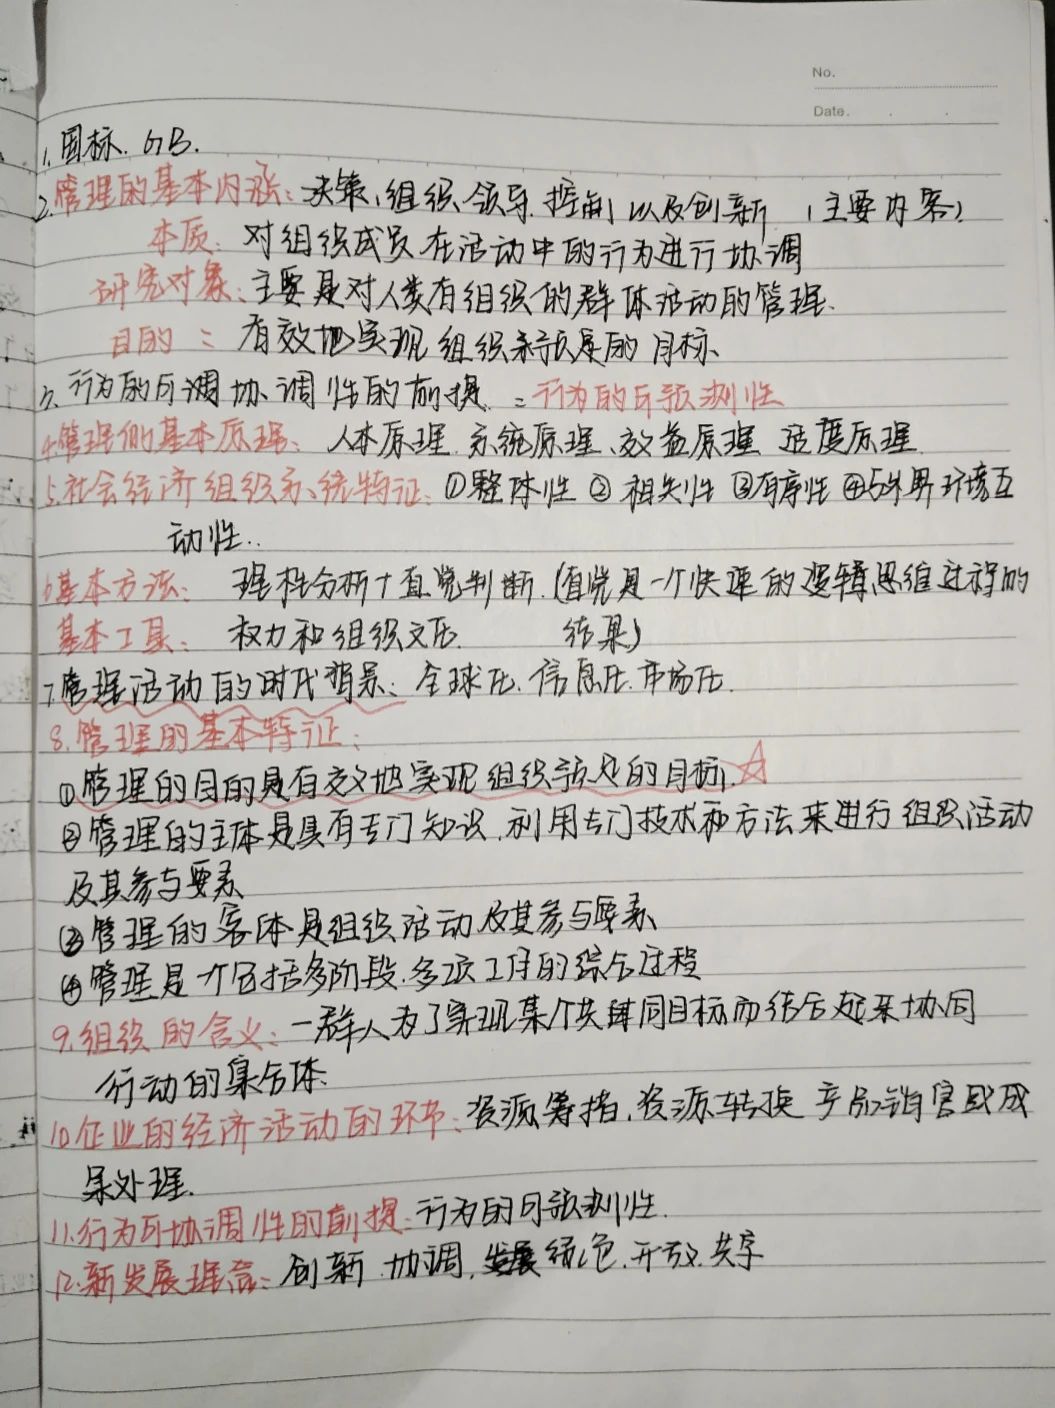 No.
Date.
1. 国标. GB.
2. 管理的基本内涵: 决策、组织、领导、控制、以及创新 (主要内容)
本质: 对组织成员在活动中的行为进行协调
研究对象: 主要是对人类有组织的群体活动的管理.
目的: 有效地实现组织 的目标.
3. 行为的可调协调性的前提: 行为的可预测性
4. 管理的基本原理: 人本原理、系统原理、效益原理 适度原理.
5. 社会经济组织系统特征: ①整体性 ② 相关性 ③有序性 ④与外界环境互
动性..
6 基本方法: 理性分析+直觉判断. (直觉是一个快速的逻辑思维过程的
基本工具: 权力和组织文化. 结果)
7. 管理活动的时代背景: 全球化. 信息化. 市场化.
8. 管理的基本特征:
①管理的目的是有效地实现组织预定的目标.☆
②管理的主体是具有专门知识、利用专门技术和方法来进行组织活动
及其参与要素
③管理的客体是组织活动及其参与要素
④管理是一个包括多阶段.多项工作的综合过程
9. 组织的含义: 一群人为了实现某个共同目标而结合起来协同
行动的集合体.
10 企业的经济活动的环节: 资源筹措. 资源转换 产品销售或成
果处理.
11. 行为可协调性的前提: 行为的可预测性.
12. 新发展理念: 创新. 协调. 绿色. 开放. 共享